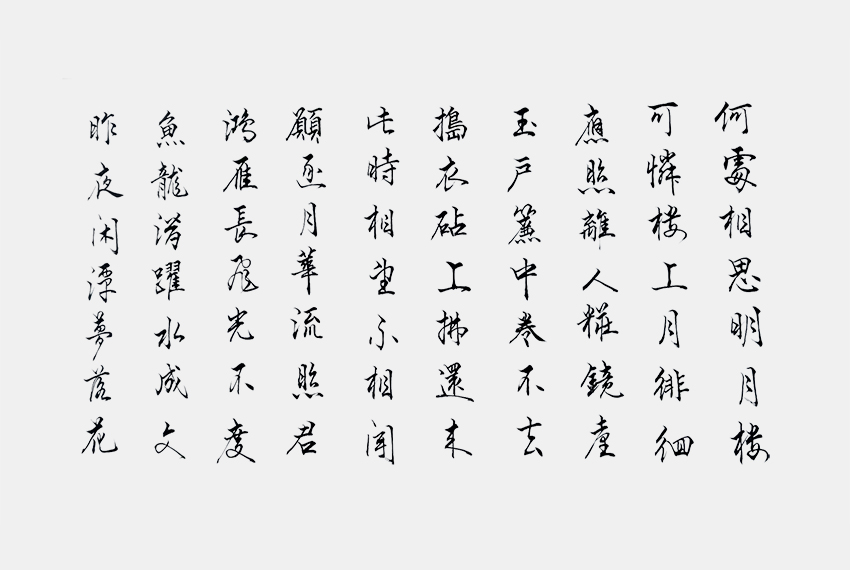 何處相思明月樓
可憐樓上月徘徊
應照離人糚鏡臺
玉戶簾中卷不去
搗衣砧上拂還來
此時相望不相聞
願逐月華流照君
鴻雁長飛光不度
魚龍潛躍水成文
昨夜闲潭夢落花